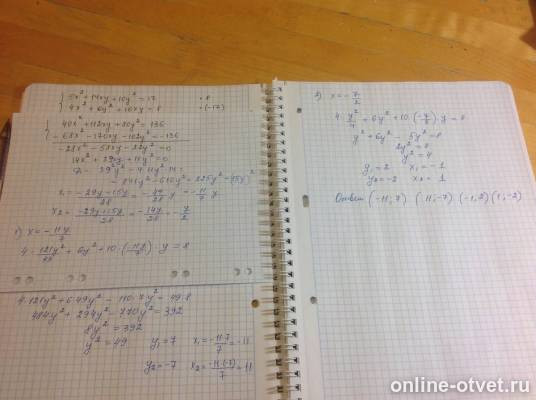 5x² + 14xy + 10y² = 17 · 8
4x² + 6y² + 10xy = 8 · (-17)
40x² + 112xy + 80y² = 136
-68x² - 170xy - 102y² = -136
-28x² - 58xy - 22y² = 0
14x² + 29xy + 11y² = 0
D = 29²y² - 4·11y²·14 =
= 841y² - 616y² = 225y² = (15y)²
x₁ = (-29y+15y)/28 = -14/28 y = -11/7 y
x₂ = (-29y+15y)/28 = -14y/28 = -y/2
1) x = -11y/7
4 · 121y²/49 + 6y² + 10 · (-11y/7) · y = 8
4·121y² + 6·49y² - 110·7y² = 49·8
484y² + 294y² - 770y² = 392
8y² = 392
y² = 49 y₁ = 7 x₁ = -11·7/7 = -11
y₂ = -7 x₂ = -11·(-7)/7 = 11
2) x = -y/2
4 · y²/4 + 6y² + 10 · (-y/2) · y = 8
y² + 6y² - 5y² = 8
2y² = 8
y² = 4
y₁ = 2 x₁ = -1
y₂ = -2 x₂ = 1
Ответ (-11; 7) (11; -7) (-1; 2) (1; -2)
online-otvet.ru